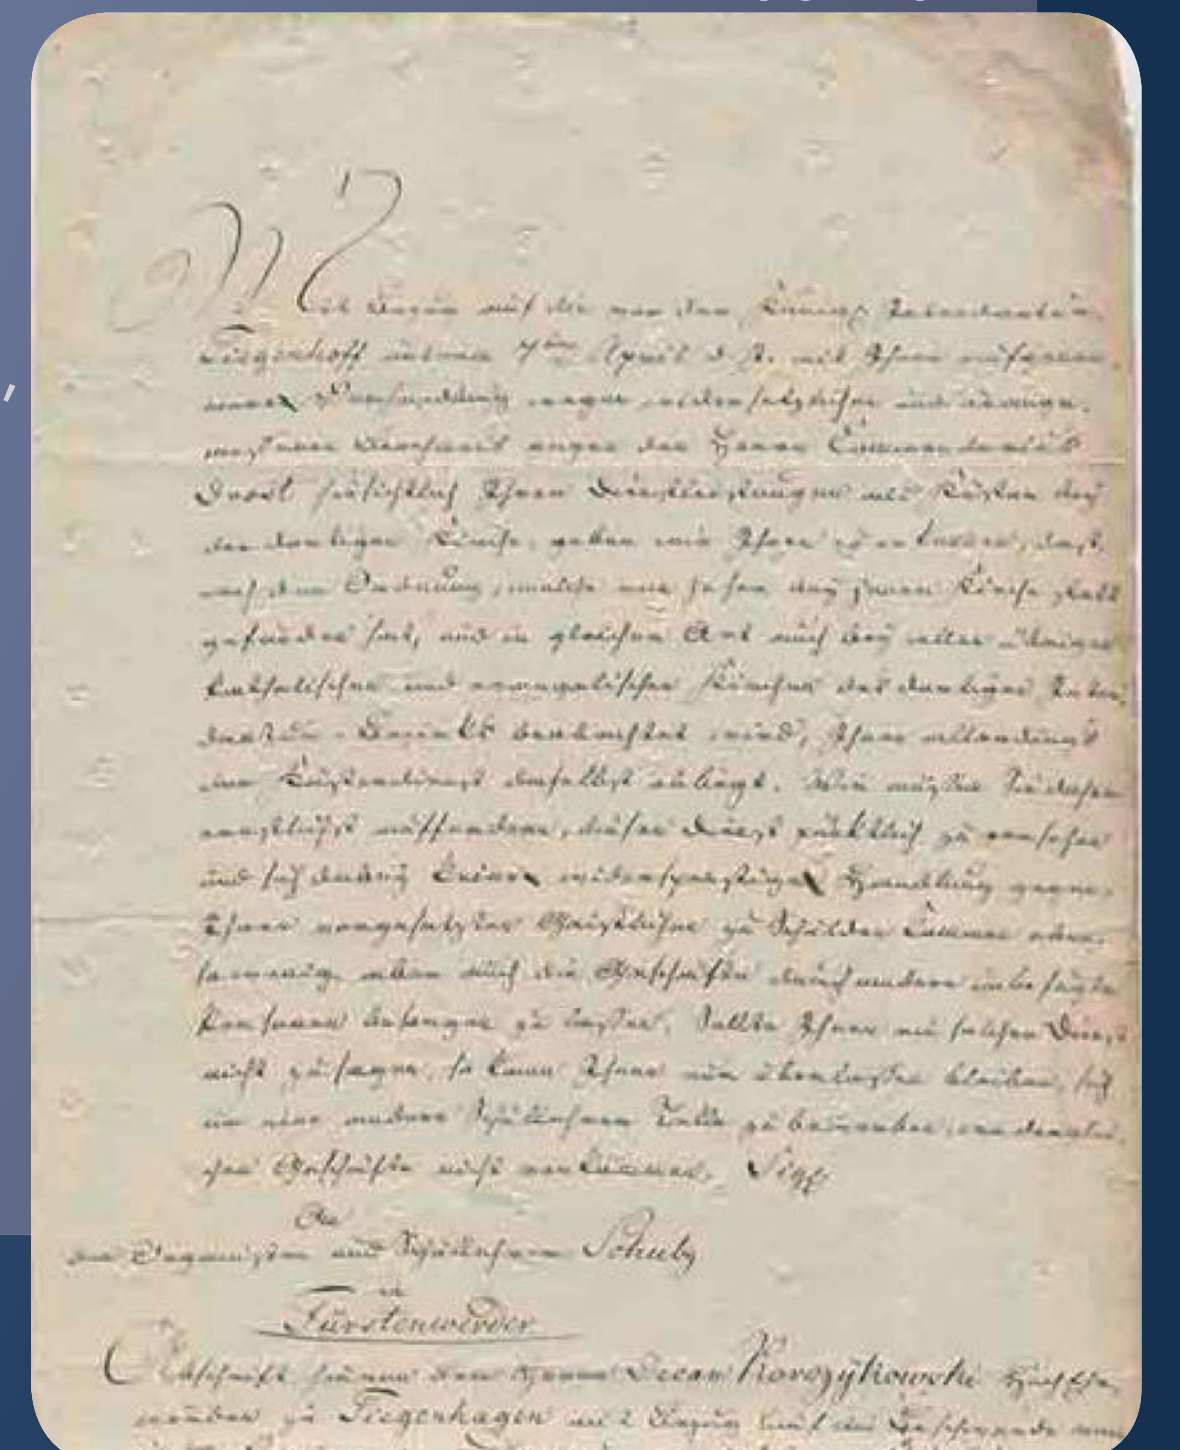 Mit Bezug auf die von der Königl. Intendantur
Tiegenhoff unterm 7ten April d. J. mit Ihnen aufgenom-
mene Verhandlung wegen widersetzlichen und
Benehmens gegen den Herrn Commendarius
Drost hinsichtlich Ihrer Dienstleistungen als Küster bey
der dortigen Kirche, geben wir Ihnen zu erkennen, daß
nach der Ordnung, welche von jeher bey jener Kirche statt
gefunden hat, und in gleicher Art auch bey allen übrigen
katholischen und evangelischen Kirchen des dortigen Inten-
dantur-Bezirks beobachtet wird, Ihnen allerdings
der Küsterdienst daselbst obliegt. Wir müssen Sie daher
ernstlichst auffordern, diesen Dienst pünktlich zu versehen
und sich durchaus keine widerspenstige Handlung gegen
Ihren vorgesetzten Geistlichen zu Schulden kommen
eben auch die Geschäfte durch andere unbefugte
Personen besorgen zu lassen. Sollte Ihnen ein solcher Dienst
nicht zusagen, so kann Ihnen nur überlassen bleiben, sich
um eine andere Schullehrer Stelle zu bewerben,
Geschäfte nicht vorkommen. Sign.
An
den Organisten und Schullehrer Schulz
in
Fürstenwerder
Abschrift hievon dem Herrn Decan
zu Tiegenhagen in Bezug auf die Beschwerde vom